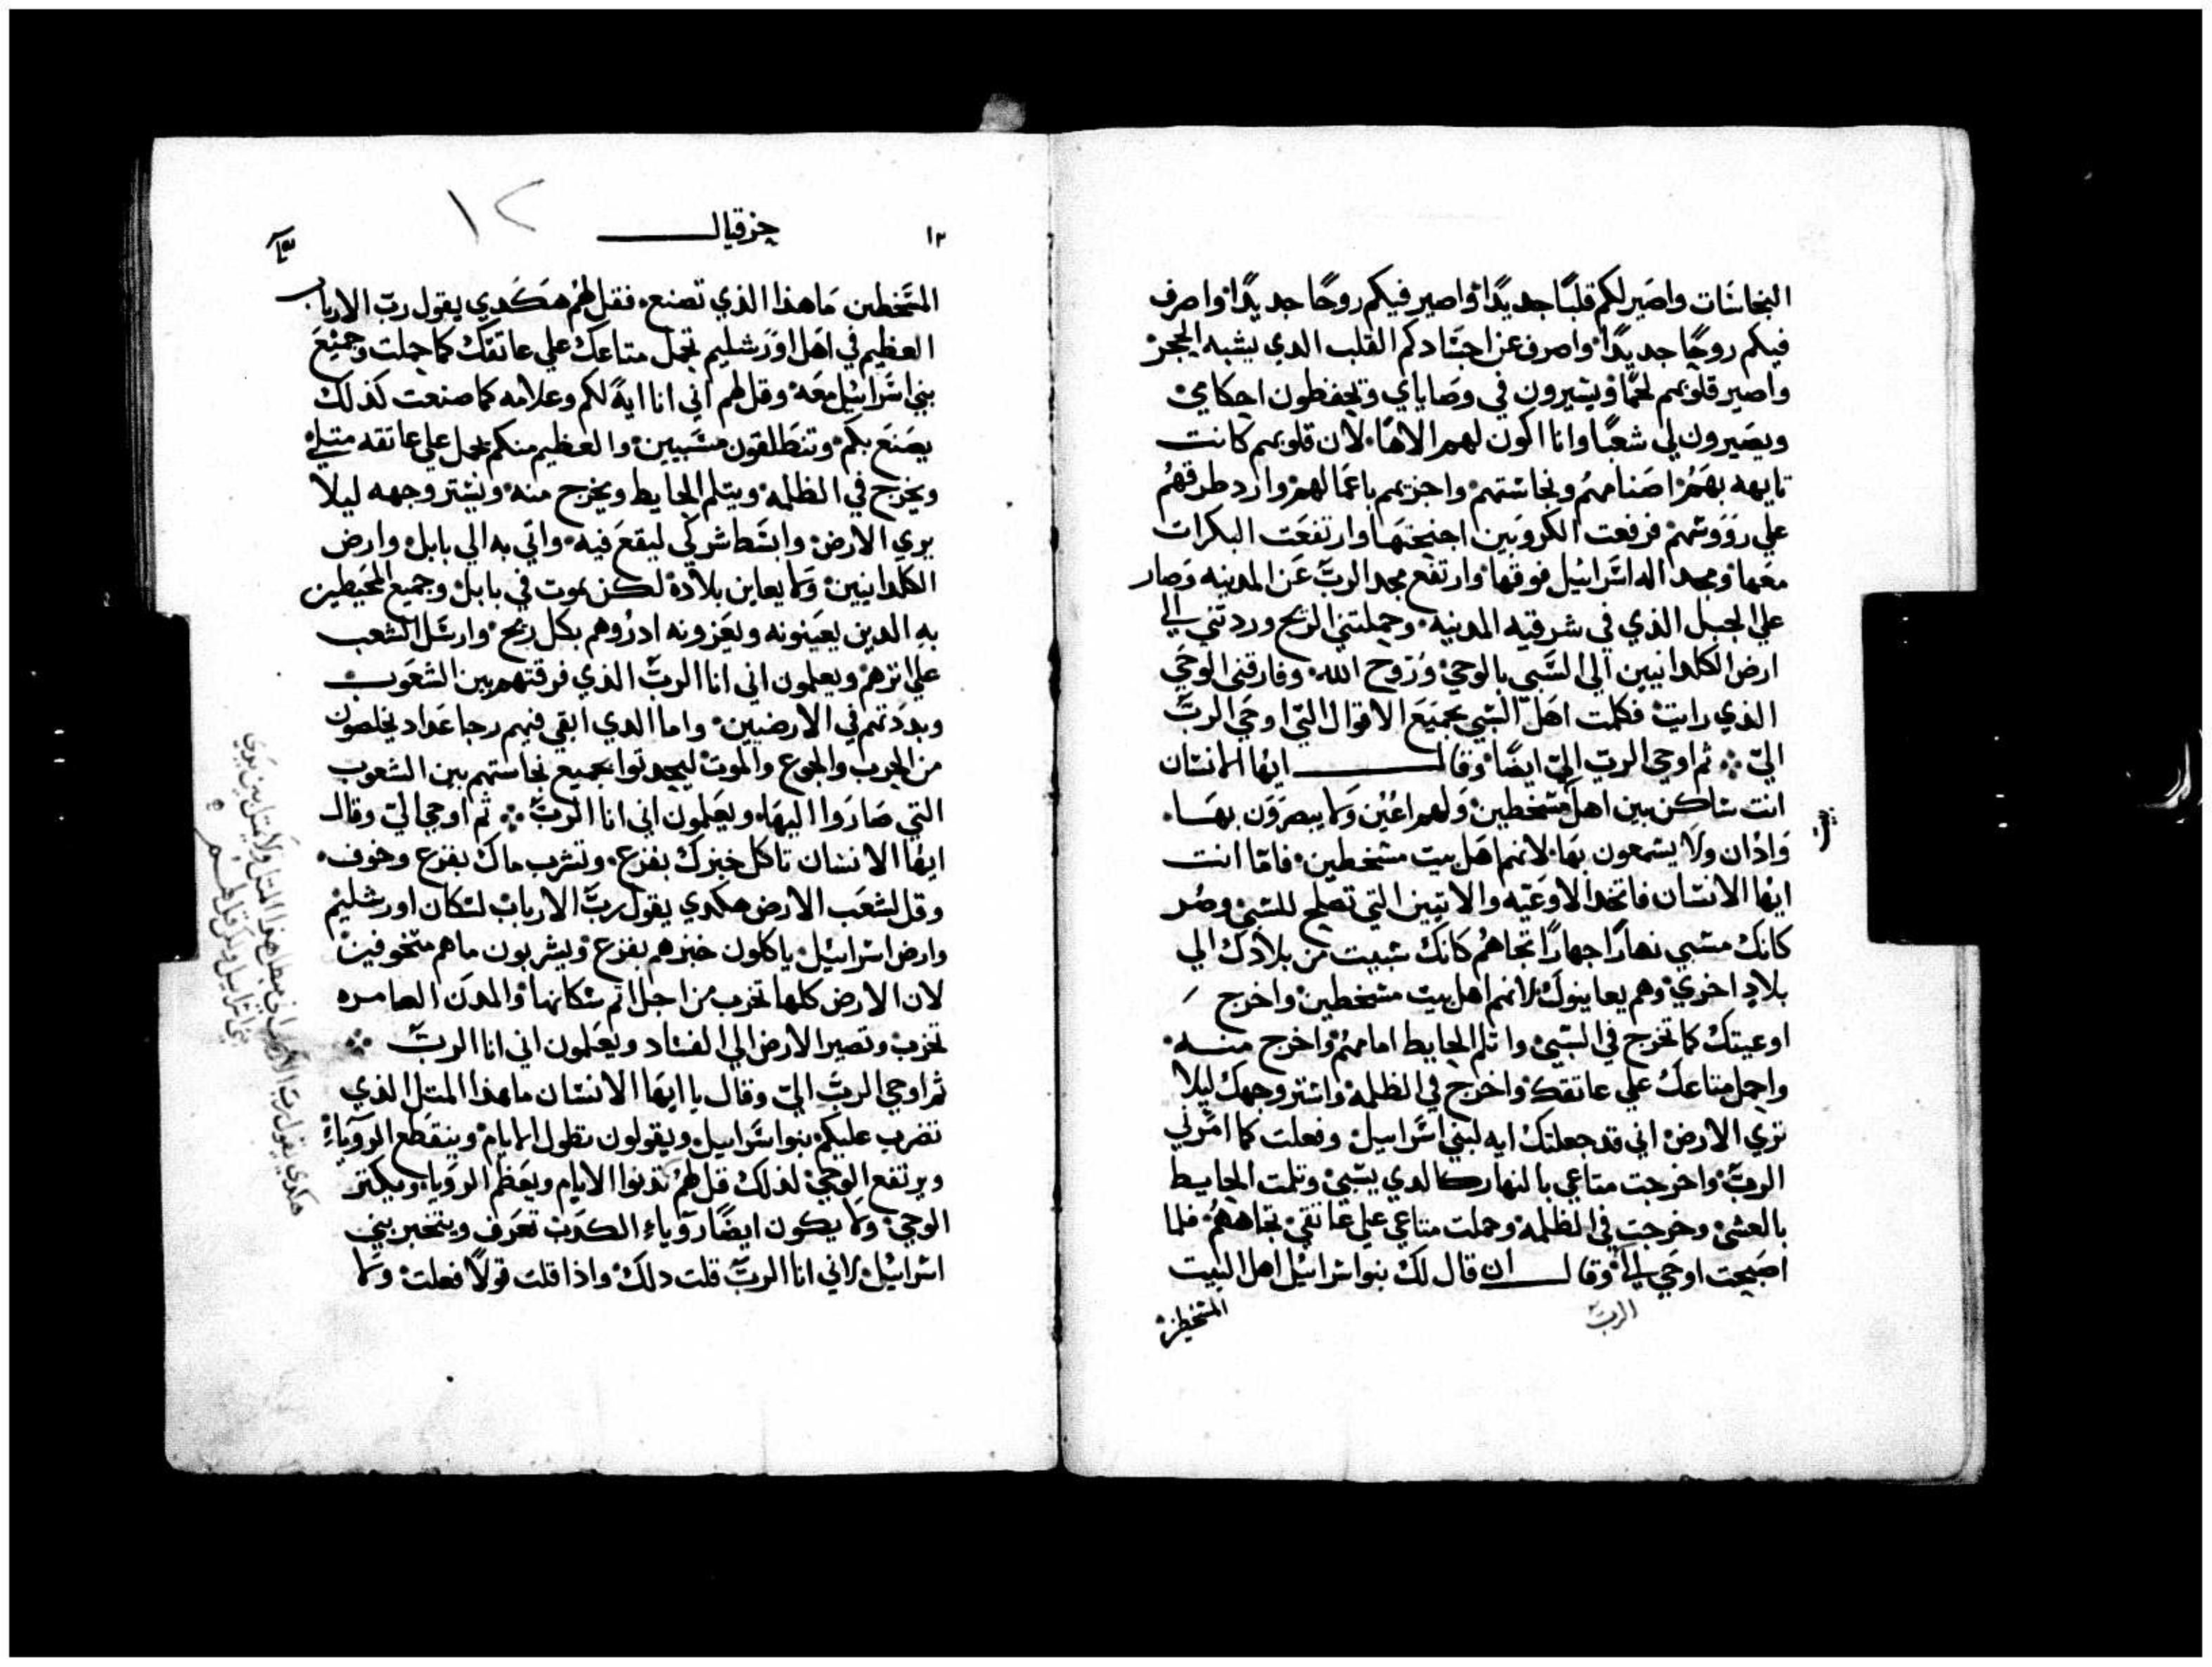 النجاسات واصير لكم قلبًا جديدًا واصير فيكم روحًا جديدًا واصرف
فيكم روحًا جديدًا واصرف عن اجسادكم القلب الدي يشبه الحجر
واصير قلوبهم لحمًا ويسيرون في وصاياي ويحفظون احكامي
ويصيرون لي شعبًا وانا اكون لهم الاهًا لان قلوبهم كانت
تايهه بهم اصنامهم ونجاستهم واجزيهم باعمالهم وارد طرقهم
علي رووسهم فرفعت الكروبين اجنحتها وارتفعت البكرات
معها ومجد اله اسراييل فوقها وارتفع مجد الرب عن المدينه وصار
علي الجبل الذي في شرقيه المدينه وحملتني الريح وردتني الي
ارض الكلدانيين الي السبي بالوحي وروح الله وفارقني الوحي
الذي رايت فكلمت اهل السبي بجميع الاقوال التي اوحي الرب
الي ثم اوحي الرب الي ايضًا وقال ايها الانسان
انت ساكن بين اهل مسخطين ولهم اعين ولا يبصرون بها
واذان ولا يسمعون بها لانهم اهل بيت مسخطين فاما انت
ايها الانسان فاتخد الاوعيه والانيين التي تصلح للسبي وصر
كانك مسبي نهارًا جهارًا تجاهم كانك سبيت من بلادك الي
بلاد اخري وهم يعاينوك لانهم اهل بيت مسخطين واخرج
اوعيتك كما تخرج في السبي واتلم الحايط امامهم واخرج منه
واحمل متاعك علي عاتقك واخرج في الظلمه واستر وجهك ليلا
تري الارض اني قد جعلتك ايه لبني اسراييل وفعلت كما امرني
الرب واخرجت متاعي بالنهار كالدي يسبي وتلمت الحايط
بالعشي وخرجت في الظلمه وحملت متاعي علي عاتقي تجاههم فلما
اصبحت اوحي الي وقال ان قال لك بنو اسراييل اهل البيت
الرب
المسخطين
١٢ حزقيال ١٢
المسخطين ما هذا الذي تصنع فقل لهم هكدي يقول رب الارباب
العظيم في اهل اورشليم تحمل متاعك علي عاتقك كما حملت وجميع
بني اسراييل معه وقل لهم اني انا ايه لكم وعلامه كما صنعت كذلك
يصنع بكم وتنطلقون مسبيين والعظيم منكم يحمل علي عاتقه
ويخرج في الظلمه ويتلم الحايط ويخرج منه ويستر وجهه ليلا
يري الارض وابسط شركي ليقع فيه واتي به الي بابل وارض
الكلدانيين ولا يعاين بلاده لكن يموت في بابل وجميع المحيطين
به الدين يعينونه ويعزونه ادروهم بكل ريح وارسل
علي اترهم ويعلمون اني انا الرب الذي فرقتهم بين الشعوب
وبددتهم في الارضيين واما الدي ابقي فيهم رجا عداد يخلصون
من الحرب والجوع والموت ليحدتوا بجميع نجاستهم بين الشعوب
التي صاروا اليها ويعلمون اني انا الرب ثم اوحي الي وقال
ايها الانسان تاكل خبزك بفزع وتشرب ماك بفزع وخوف
وقل لشعب الارض هكدي يقول رب الارباب لسكان اورشليم
وارض اسراييل ياكلون خبزهم بفزع ويشربون ماهم متخوفين
لان الارض كلها تخرب من اجل اتم سكانها والمدن العامره
تخرب وتصير الارض الي الفساد ويعلمون اني انا الرب
ثم اوحي الرب الي وقال يا ايها الانسان ما هذا المتل الذي
تضرب عليكم بنو اسراييل ويقولون تطول الايام وينقطع الروياء
ويرتفع الوحي لذلك قل لهم تدنوا الايام ويعظم الرويا ويكتر
الوحي ولا يكون ايضًا روياء الكدب تعرف ويتخبر بني
اسراييل لاني انا الرب قلت دلك واذا قلت قولًا فعلت ولا
هكدي يقول رب الارباب اني مبطل هدا المتل ولا يتمتل بين بدي
بني اسراييل ولكن قل لهم